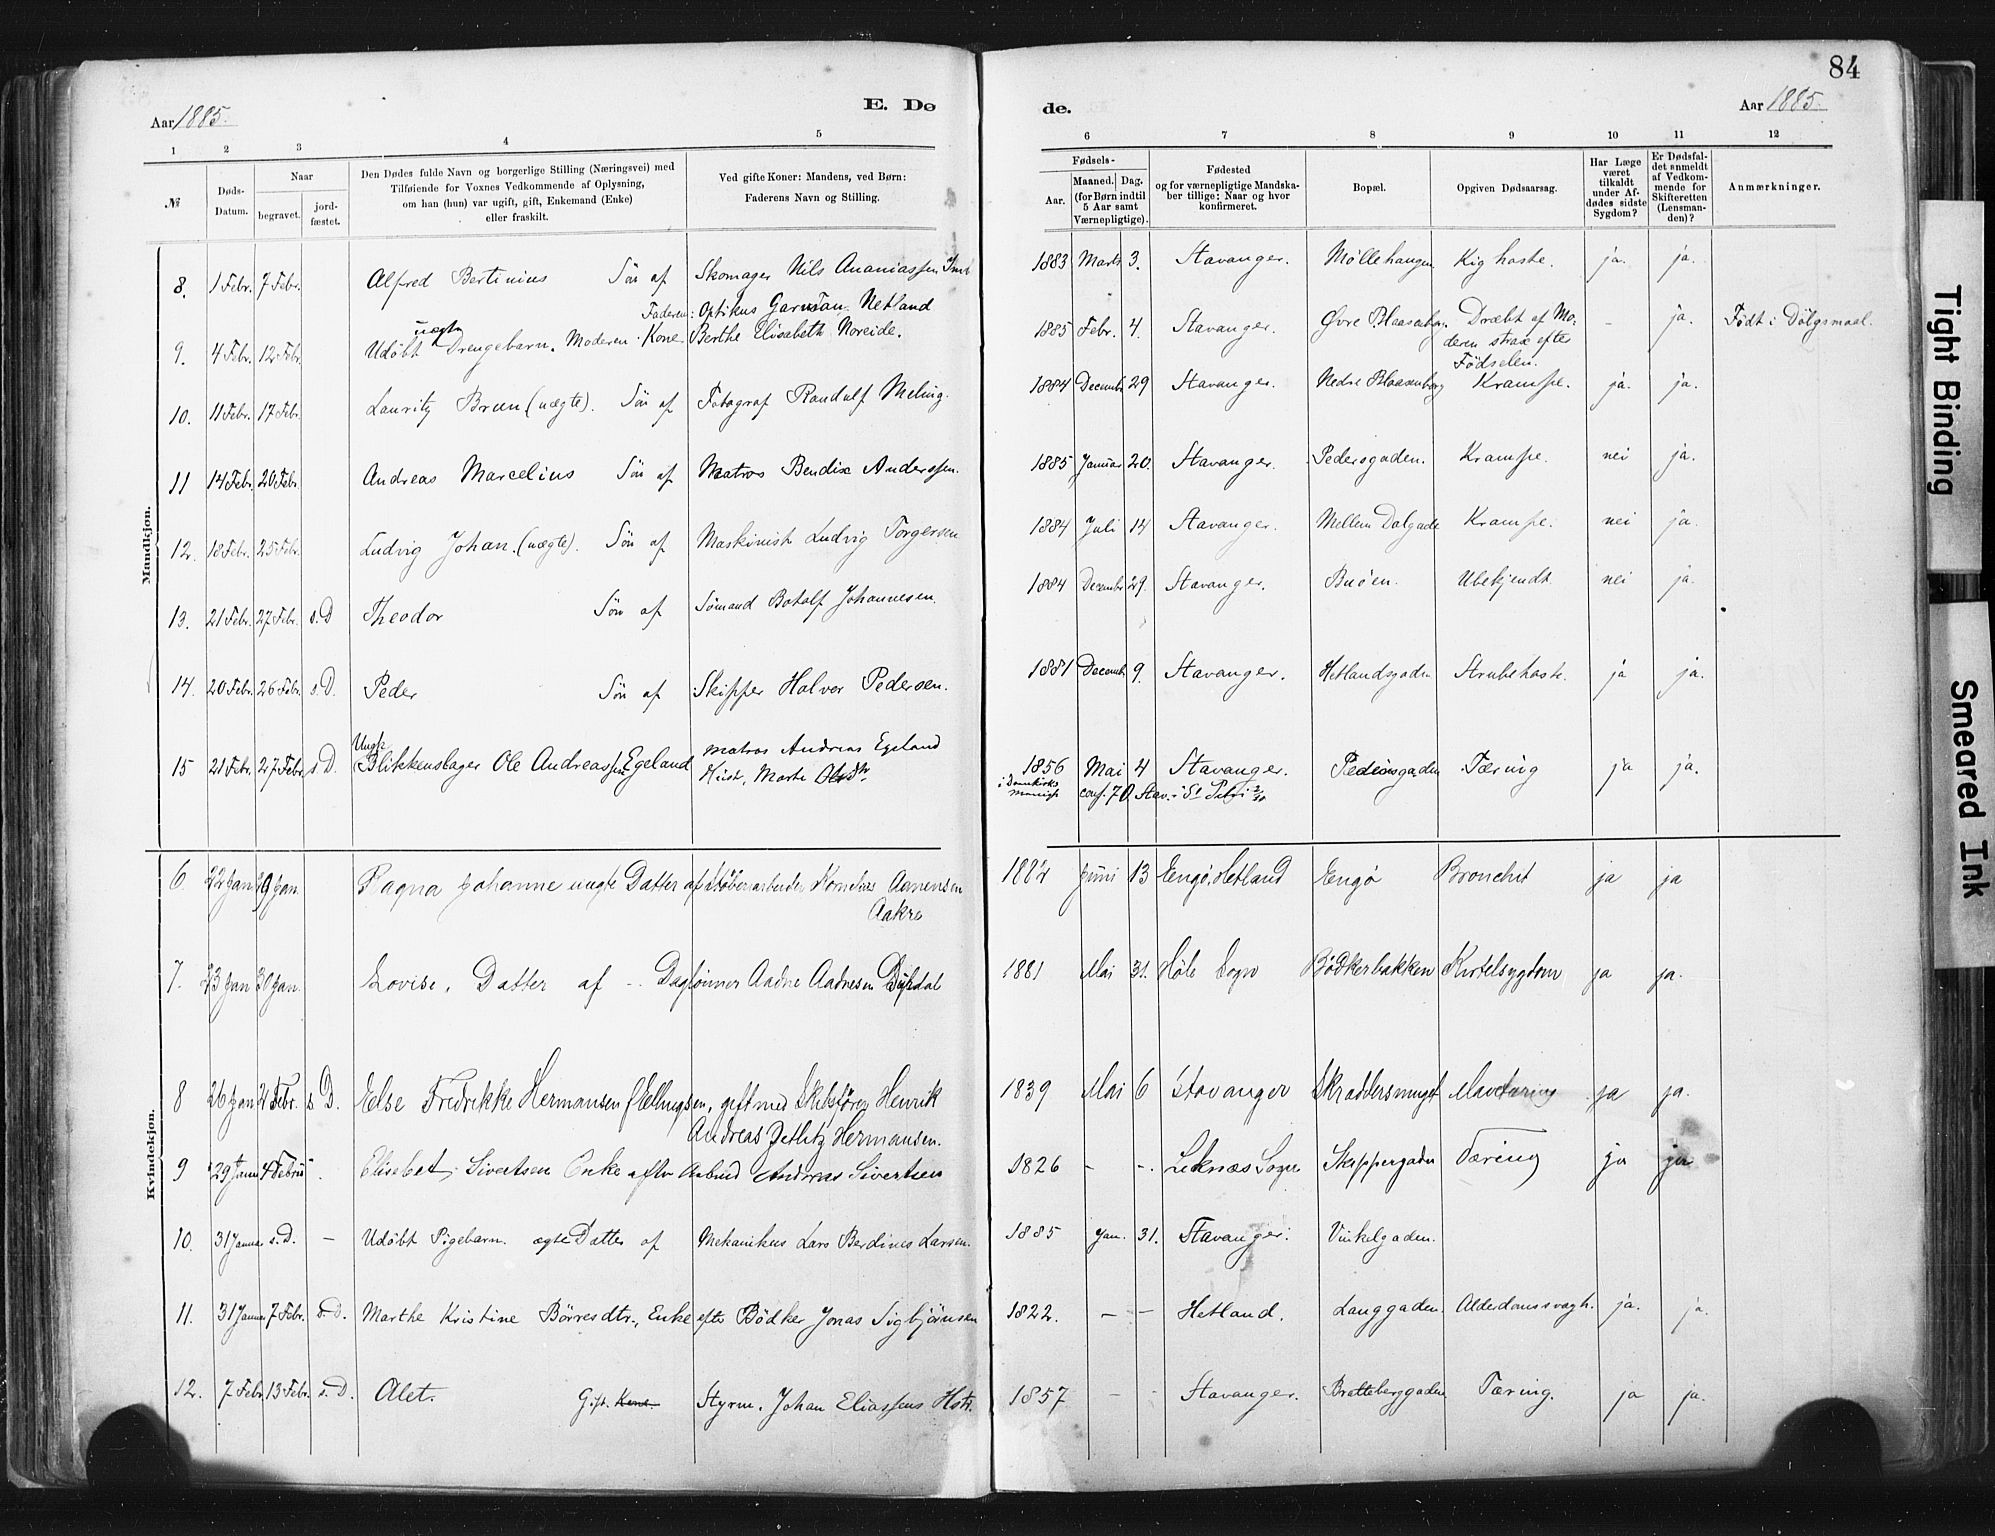 84
Aar 1885.
E. Dø
de.
Aar 1885.
1 2 3 4 5 6 7 8 9 10 11 12
№
Døds-
Datum.
Naar
begravet.
jord-
fæstet.
Den Dødes fulde Navn og borgerlige Stilling (Næringsvei) med
Tilføiende for Voxnes Vedkommende af Oplysning,
om han (hun) var ugift, gift, Enkemand (Enke)
eller fraskilt.
Ved gifte Koner: Mandens, ved Børn:
Faderens Navn og Stilling.
Fødsels-
Aar.
Maaned. Dag.
(for Børn indtil
5 Aar samt
Værnepligtige).
Fødested
og for værnepligtige Mandska-
ber tillige: Naar og hvor
konfirmeret.
Bopæl.
Opgiven Dødsaarsag.
Har Læge
været
tilkaldt
under Af-
dødes sidste
Sygdom?
Er Dødsfal-
det anmeldt
af Vedkom-
mende for
Skifteretten
(Lensman-
den)?
Anmærkninger.
Mandkjøn.
8. 1 Febr. 7 Febr. Alfred Bertinius Søn af Skomager Nils Ananiassen 1883 Marts 3. Stavanger. Møllehaugen Kighoste. ja. ja.
Faderen: Optikus Garman Netland
uægte
9. 4 Febr. 12 Febr. Udøbt Drengebarn. Moderen: Kone Berthe Elisabeth Noreide. 1885 Febr. 4. Stavanger. Øvre Blaasenborg. Dræbt af Mo- – ja. Født i Dølgsmaal.
deren strax efter
Fødselen.
10. 11 Febr. 17 Febr. Lauritz Brun (uægte). Søn af Fotograf Randulf Meling. 1884 Decemb. 29 Stavanger. Nedre Blaasenborg Krampe. ja. ja.
11 14 Febr. 20 Febr. Andreas Marcelius Søn af Matros Bendix Anderssen. 1885 Januar 20. Stavanger. Pedersgaden. Krampe. nei ja.
12. 18 Febr. 25 Febr. Ludvig Johan. (uægte). Søn af Maskinist Ludvig Torgersen 1884 Juli 14 Stavanger. Mellem Dalgade Krampe. nei ja.
13. 21 Febr. 27 Febr. s.D Theodor Søn af Sømand Botolf Johannesen. 1884 December 29. Stavanger. Buøen. Ubekjendt. nei ja.
14. 20 Febr. 26 Febr. s.D. Peder Søn af Skipper Halvor Pedersen. 1881 Decemb. 9. Stavanger. Hetlandsgaden Strubehoste. ja ja.
Ungk.
15 21 Febr. 27 Febr. s.D. Blikkenslager Ole Andreassen Egeland matros Andreas Egeland 1856 Mai 4 Stavanger. Pedersgaden Tæring ja ja.
Hust. Marte Olsdtr.
i Domkirks
menigh. conf. 70. Stav. i St Petri 2/10
Kvindekjøn.
6. 22 Jan 29 Jan. Ragna Johanne uægte Datter af Støberiarbeider Kornelius Aamensen 1884 Juni 13 Engø, Hetland Engø Bronchit ja ja
Aakre
7. 23 Jan 30 Jan. Lovise, Datter af – Daglønner Aadne Aadnesen Dyrdal 1881 Mai 31. Høle Sogn Bødkerbakken Kirtelsygdom ja ja.
8 26 Jan 4 Febr. s.D. Else Fredrikke Hermansen f. Ellingsen, gift med Skibsfører Henrik 1839 Mai 6 Stavanger Skraddersmuget Mavetæring ja ja.
Andreas Zetlitz Hermansen.
9 29 Janu 4 Febru Elisebet Sivertsen Enke efter Arbmd Andreas Sivertsen 1826 – – Leknæs Sogn Skippergaden Tæring ja ja
10. 31 Januar s.D. – Udøbt Pigebarn. ægte Datter af Mekanikus Lars Berdines Larsen. 1885 Jan. 31. Stavanger. Vinkelgaden.
11. 31 Januar 7 Febr. s.D. Marthe Kristine Børresdtr., Enke efter Bødker Jonas Sigbjørnsen 1822. – – Hetland. Langgaden. Alderdomssvagh. ja. ja.
12. 7 Febr. 13 Febr. s.D. Alet. Gift. Kone. Styrm. Johan Eliassens Hstr. 1857 – – Stavanger. Bratteberggaden Tæring. ja ja.
Tight Binding
Smeared Ink